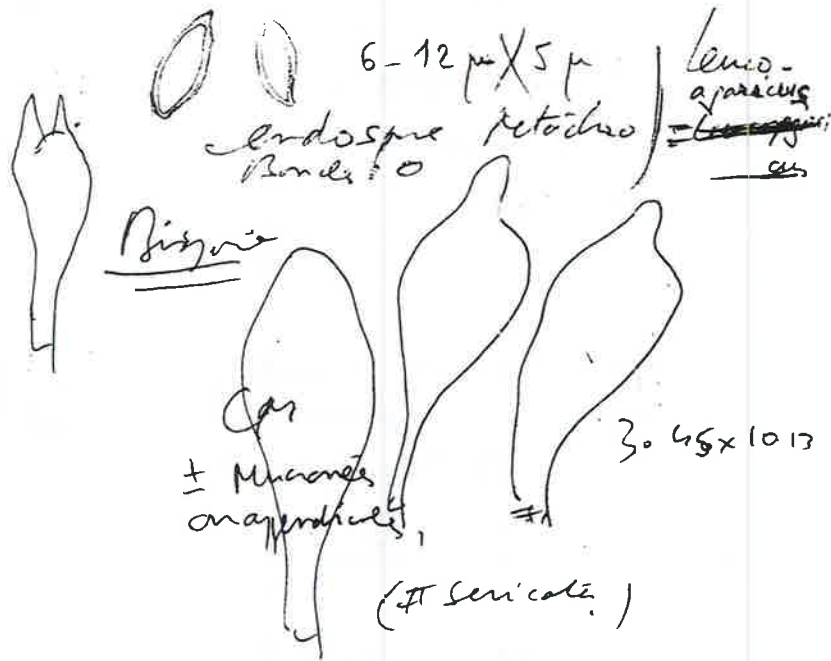 6-12 µ X 5 µ
Leuco-
agaricus
endospore métachro
Boucles : 0
Bisporie
Cys
± Mucronés
ou appendiculés,
30 45 x 10 13
(# sericatus)